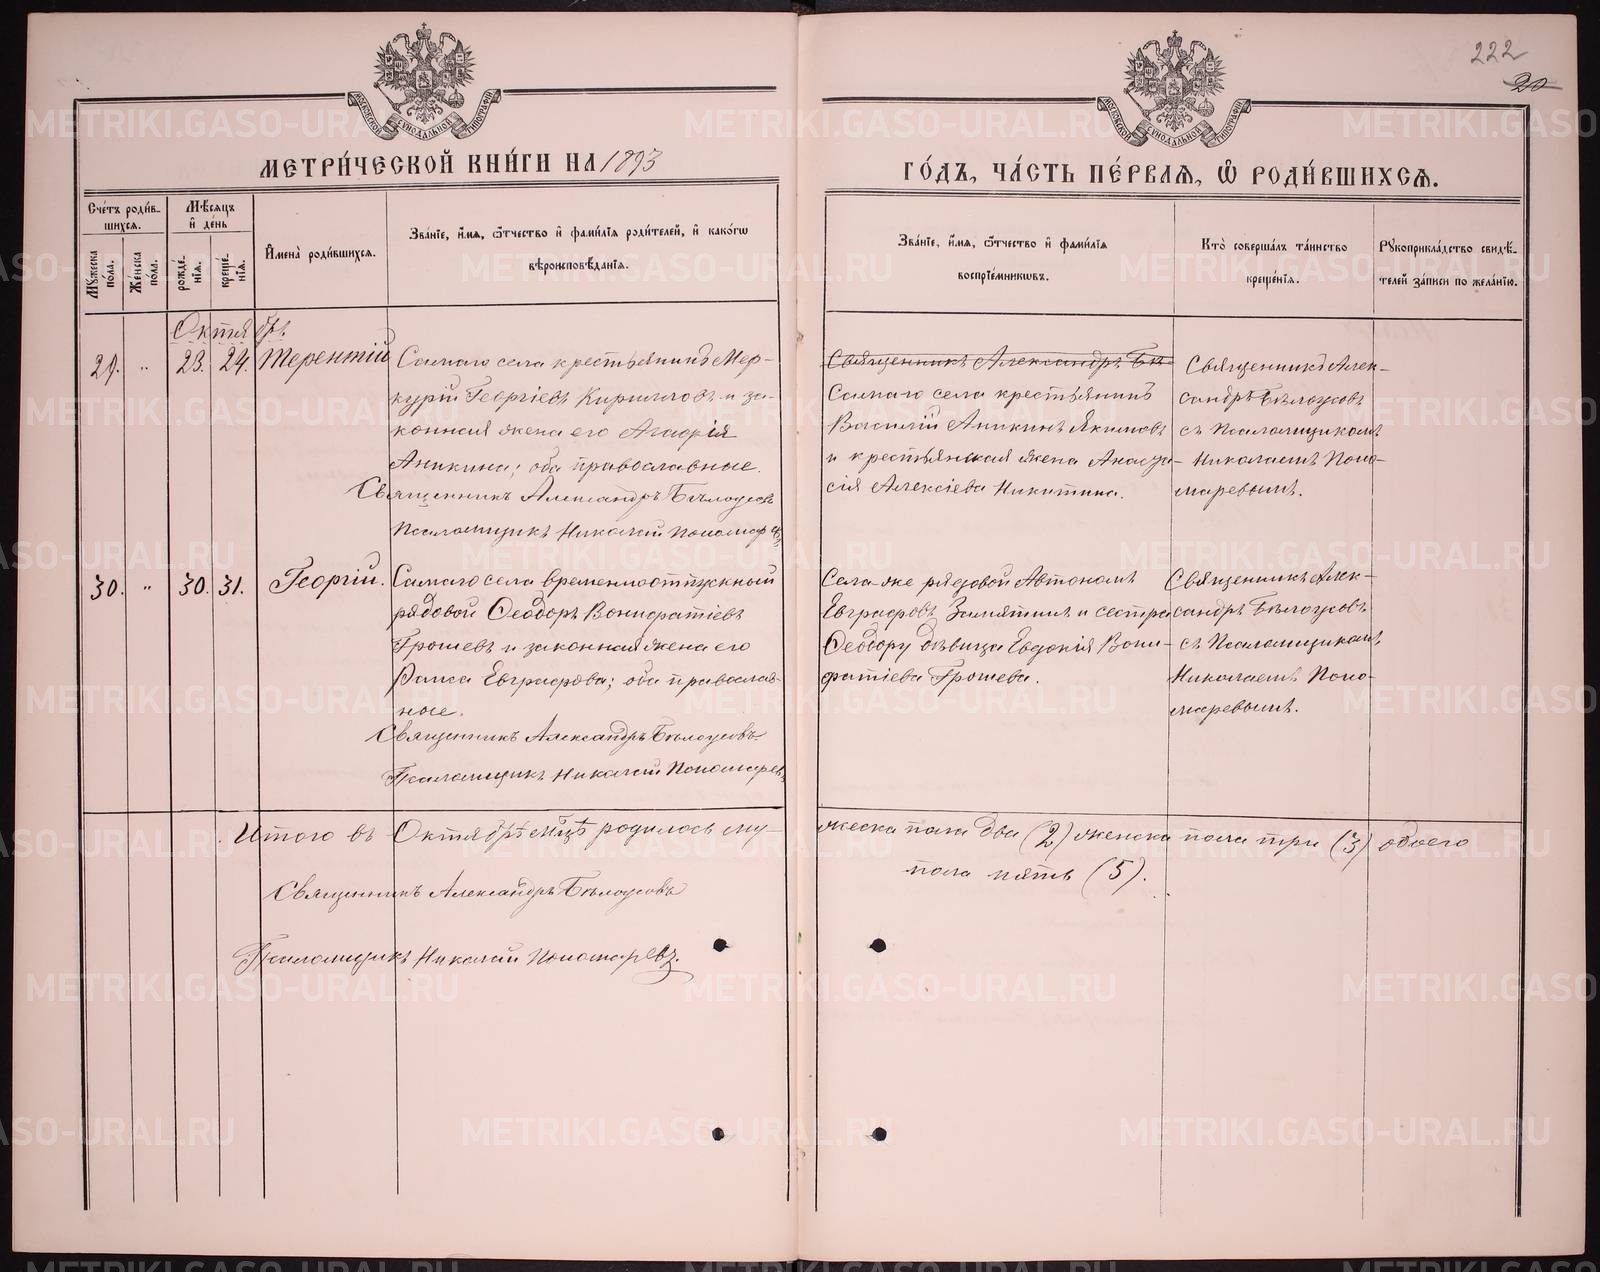 222
20
МОСКОВСКОЙ СѴНОДАЛЬНОЙ ТИПОГРАФІИ
МОСКОВСКОЙ СѴНОДАЛЬНОЙ ТИПОГРАФІИ
МЕТРИ́ЧЕСКОЙ КНИ́ГИ НА 1893
ГО́ДЪ, ЧА́СТЬ ПЕ́РВАЯ, Ѡ҆ РОДИ́ВШИХСѦ.
Сче́тъ роди́в-
шихся.
Мꙋжеска по́ла.
Же́нска по́ла.
Мѣ́сяцъ
и҆ де́нь
рожде́нія.
креще́нія.
И҆мена̀ роди́вшихся.
Зва́ніе, и҆́мя, ѻ҆́тчество и҆ фами́лія роди́телей, и҆ како́гѡ
вѣроисповѣ́данія.
Зва́ніе, и҆́мя, ѻ҆́тчество и҆ фами́лія
воспріе́мникѡвъ.
Кто̀ соверша́лъ та́инство
креще́нія.
Рꙋкоприкла́дство свидѣ́-
телей за́писи по жела́нію.
Октябрь
29. " 23. 24. Терентій
Самаго села крестьянинъ Мер-
курій Георгіевъ Кирилловъ и за-
конная жена его Агафія
Аникина; оба православные.
Священникъ Александръ Бѣлоусовъ
Псаломщикъ Николай Пономаревъ
Священникъ Александръ Бѣ
Самаго села крестьянинъ
Василій Аникинъ Якимовъ
и крестьянская жена Анаста-
сія Алексіева Никитина.
Священникъ Алек-
сандръ Бѣлоусовъ
съ Псаломщикомъ
Николаемъ Поно-
маревымъ.
30. " 30. 31. Георгій.
Самаго села временноотпускный
рядовой Ѳеодоръ Вонифатіевъ
Грошевъ и законная жена его
Раиса Евграфова; оба православ-
ные.
Священникъ Александръ Бѣлоусовъ
Псаломщикъ Николай Пономаревъ
Села-же рядовой Автономъ
Евграфовъ Замятинъ и сестра
Ѳеодору дѣвица Евдокія Вони-
фатіева Грошева.
Священникъ Алек-
сандръ Бѣлоусовъ
съ Псаломщикомъ
Николаемъ Поно-
маревымъ.
Итого въ Октябрѣ мцѣ родилось му-
жеска пола два (2) женска пола три (3) обоего
пола пять (5).
Священникъ Александръ Бѣлоусовъ
Псаломщикъ Николай Пономаревъ.
METRIKI.GASO-URAL.RU